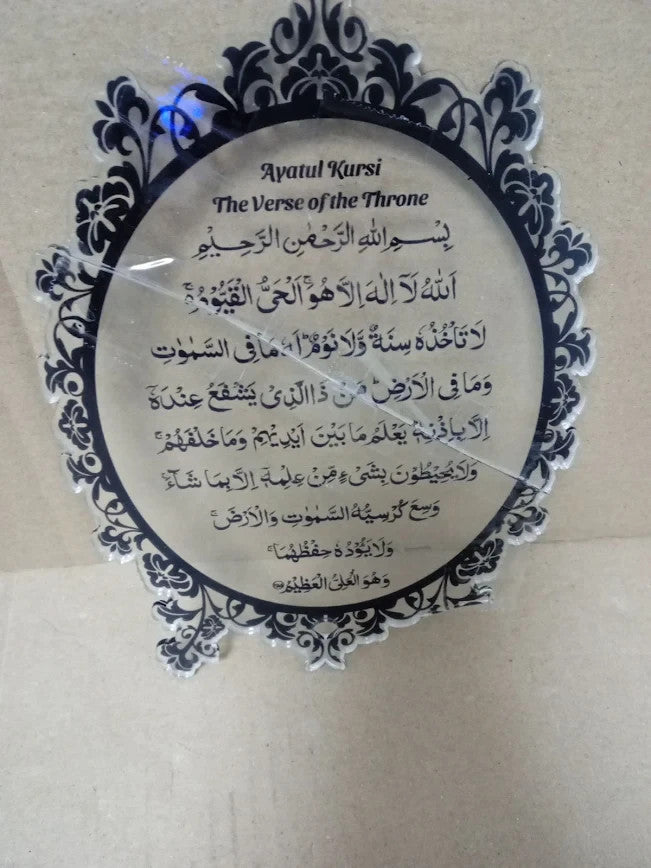 Ayatul Kursi
The Verse of the Throne
بِسْمِ اللهِ الرَّحْمٰنِ الرَّحِيْمِ
اَللهُ لَآ اِلٰهَ اِلَّا هُوَ ۚ اَلْحَیُّ الْقَيُّوْمُ ۚ
لَا تَاْخُذُهٗ سِنَةٌ وَّلَا نَوْمٌ ؕ لَهٗ مَا فِی السَّمٰوٰتِ
وَمَا فِی الْاَرْضِ ؕ مَنْ ذَا الَّذِیْ يَشْفَعُ عِنْدَهٗۤ
اِلَّا بِاِذْنِهٖ ؕ يَعْلَمُ مَا بَيْنَ اَيْدِيْهِمْ وَمَا خَلْفَهُمْ ۚ
وَلَا يُحِيْطُوْنَ بِشَیْءٍ مِّنْ عِلْمِهٖۤ اِلَّا بِمَا شَآءَ ۚ
وَسِعَ كُرْسِيُّهُ السَّمٰوٰتِ وَالْاَرْضَ ۚ
وَلَا يَـُٔوْدُهٗ حِفْظُهُمَا ۚ
وَهُوَ الْعَلِیُّ الْعَظِيْمُ